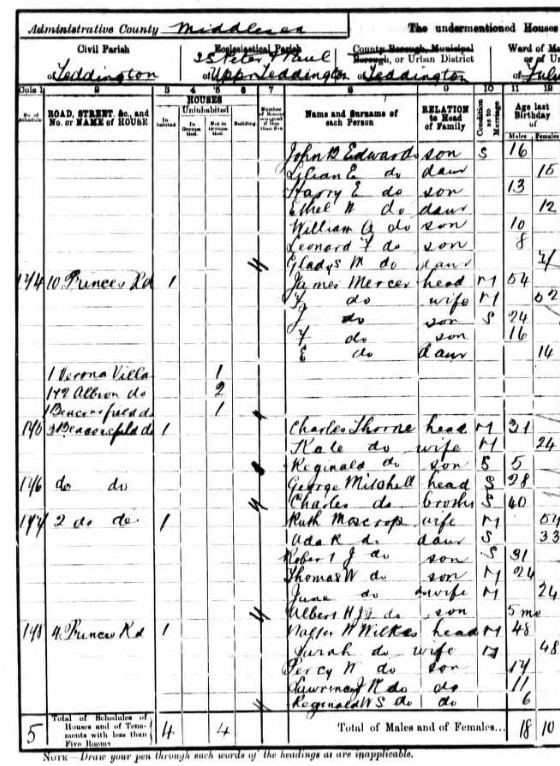 Administrative County Middlesex The undermentioned Houses
Civil Parish
of Teddington
Ecclesiastical Parish
SS Peter & Paul
of Uppr Teddington
County Borough, Municipal
Borough, or Urban District
of Teddington
Ward of
Cols 1 2 3 4 5 6 7 8 9 10 11 12
No. of Schedule
ROAD, STREET, &c., and No. or NAME of HOUSE
HOUSES
Inhabited
Uninhabited
In Occupation
Not in Occupation
Building
Name and Surname of each Person
RELATION to Head of Family
Condition as to Marriage
Age last Birthday of
Males Females
John B Edwards son S 16
Lilian E do daur 15
Harry E do son 13
Ethel do daur 12
William A do son 10
Leonard F do son 8
Gladys M do daur
144 10 Princes Rd 1 James Mercer head M 54
do wife M 52
do son S 24
F do son 16
E do daur 14
1 Verona Villa 1
1 & 2 Albion do 2
1 Beaconsfield do 1
145 Beaconsfield do 1 Charles Thorne head M 31
Kate do wife M 24
Reginald do son S 5
146 do do George Mitchell head S 28
Charles do brother S 40
147 2 do do 1 Ruth Moscrop wife M
Ada R do daur S 33
Robert J do son S 31
Thomas W do son M 24
June do wife M 24
Albert H do son 5 mo
148 4 Princes Rd 1 Walter W Wilkes head M 48
Sarah do wife M 48
Percy W do son 14
Lawrence do do 11
Reginald W S do do 6
5 Total of Schedules of Houses and of Tenements with less than Five Rooms 4 4 Total of Males and of Females... 18 10
NOTE—Draw your pen through such words of the headings as are inapplicable.